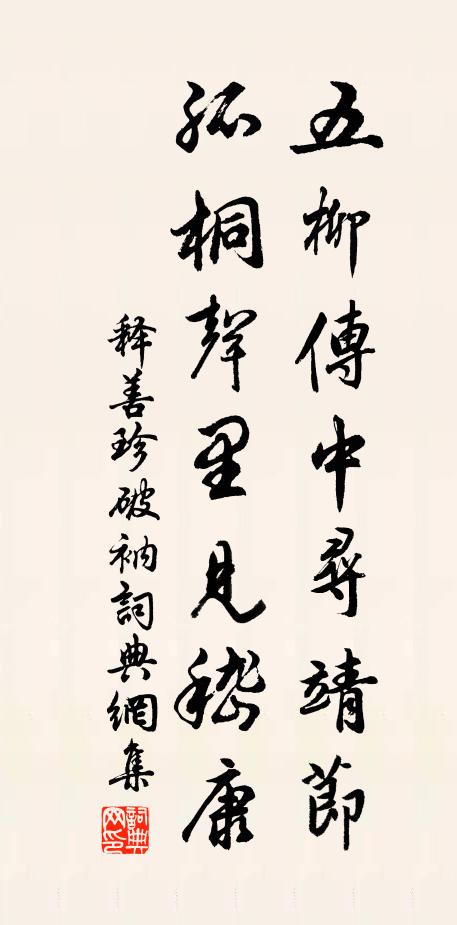 五柳傳中尋靖節
孤桐聲里見嵇康
释善珍破衲詞典網集
詞典網印